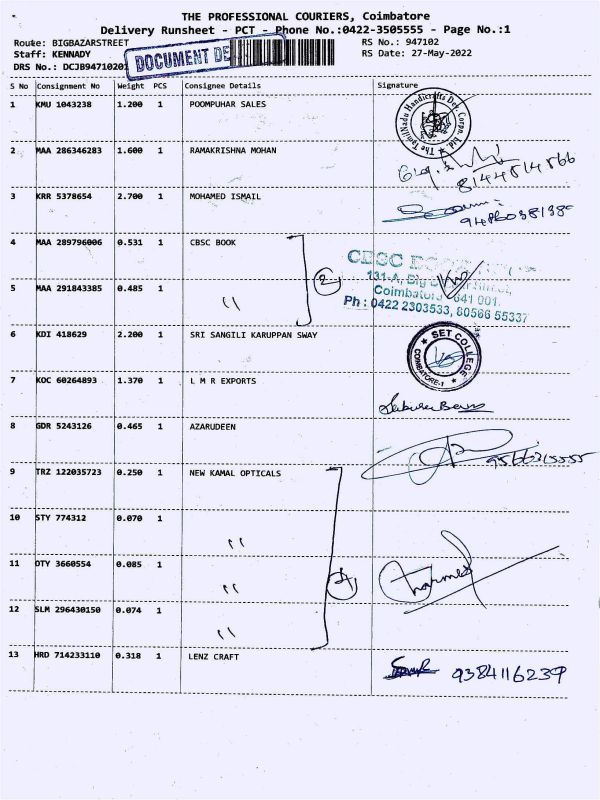 THE PROFESSIONAL COURIERS, Coimbatore
Delivery Runsheet - PCT - Phone No.:0422-3505555 - Page No.:1
Route: BIGBAZARSTREET RS No.: 947102
Staff: KENNADY RS Date: 27-May-2022
DRS No.: DCJB94710201
DOCUMENT DE
S No Consignment No Weight PCS Consignee Details Signature
1 KMU 1043238 1.200 1 POOMPUHAR SALES
The TamilNadu Handicrafts Dev. Corpn. Ltd.
2 MAA 286346283 1.600 1 RAMAKRISHNA MOHAN
8144814566
3 KRR 5378654 2.700 1 MOHAMED ISMAIL
4 MAA 289796006 0.531 1 CBSC BOOK
CBSC
2
131-A, Big
5 MAA 291843385 0.485 1 "
Coimbatore - 641 001.
Ph : 0422 2303533, 80566 55337
6 KDI 418629 2.200 1 SRI SANGILI KARUPPAN SWAY
SET COLLEGE
COIMBATORE-1
7 KOC 60264893 1.370 1 L M R EXPORTS
8 GDR 5243126 0.465 1 AZARUDEEN
9566315555
9 TRZ 122035723 0.250 1 NEW KAMAL OPTICALS
10 STY 774312 0.070 1 "
11 OTY 3660554 0.085 1 "
4
12 SLM 296430150 0.074 1 "
13 HRD 714233110 0.318 1 LENZ CRAFT
9384116239